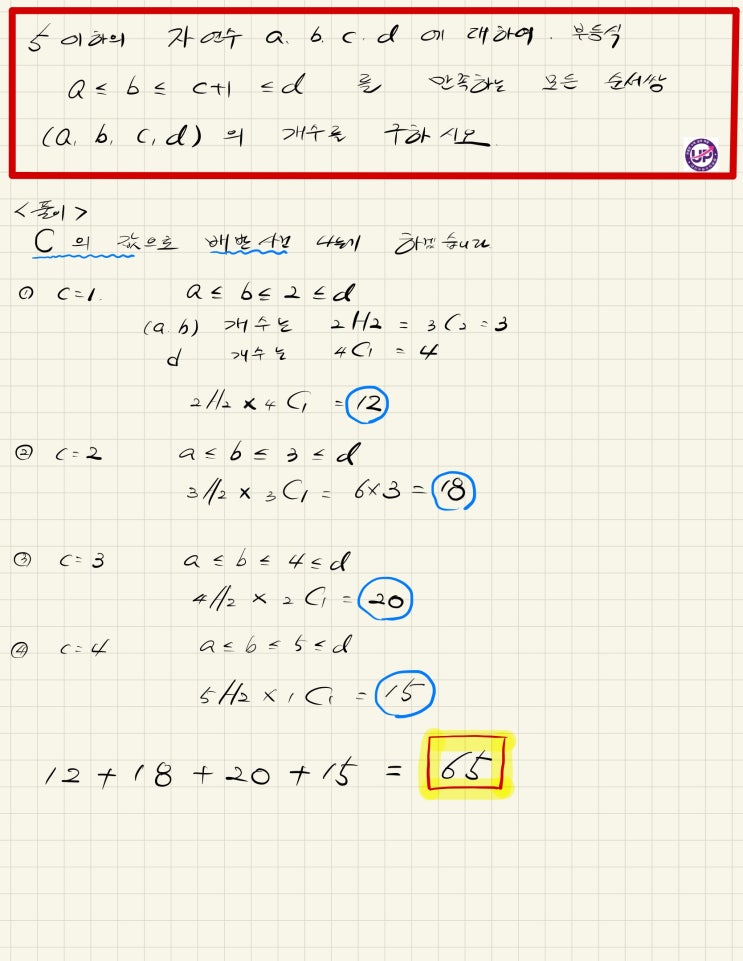 5 이하의 자연수 a. b. c. d 에 대하여. 부등식
a ≤ b ≤ c+1 ≤ d 를 만족하는 모든 순서쌍
(a, b, c, d) 의 개수를 구하시오.
UP
<풀이>
C의 값으로 배반사건 나눠 하겠습니다
① c=1. a ≤ b ≤ 2 ≤ d
(a. b) 개수는 2H2 = 3C2 = 3
d 개수는 4C1 = 4
2H2 × 4C1 = 12
② c=2 a ≤ b ≤ 3 ≤ d
3H2 × 3C1 = 6×3 = 18
③ c=3 a ≤ b ≤ 4 ≤ d
4H2 × 2C1 = 20
④ c=4 a ≤ b ≤ 5 ≤ d
5H2 × 1C1 = 15
12 + 18 + 20 + 15 = 65